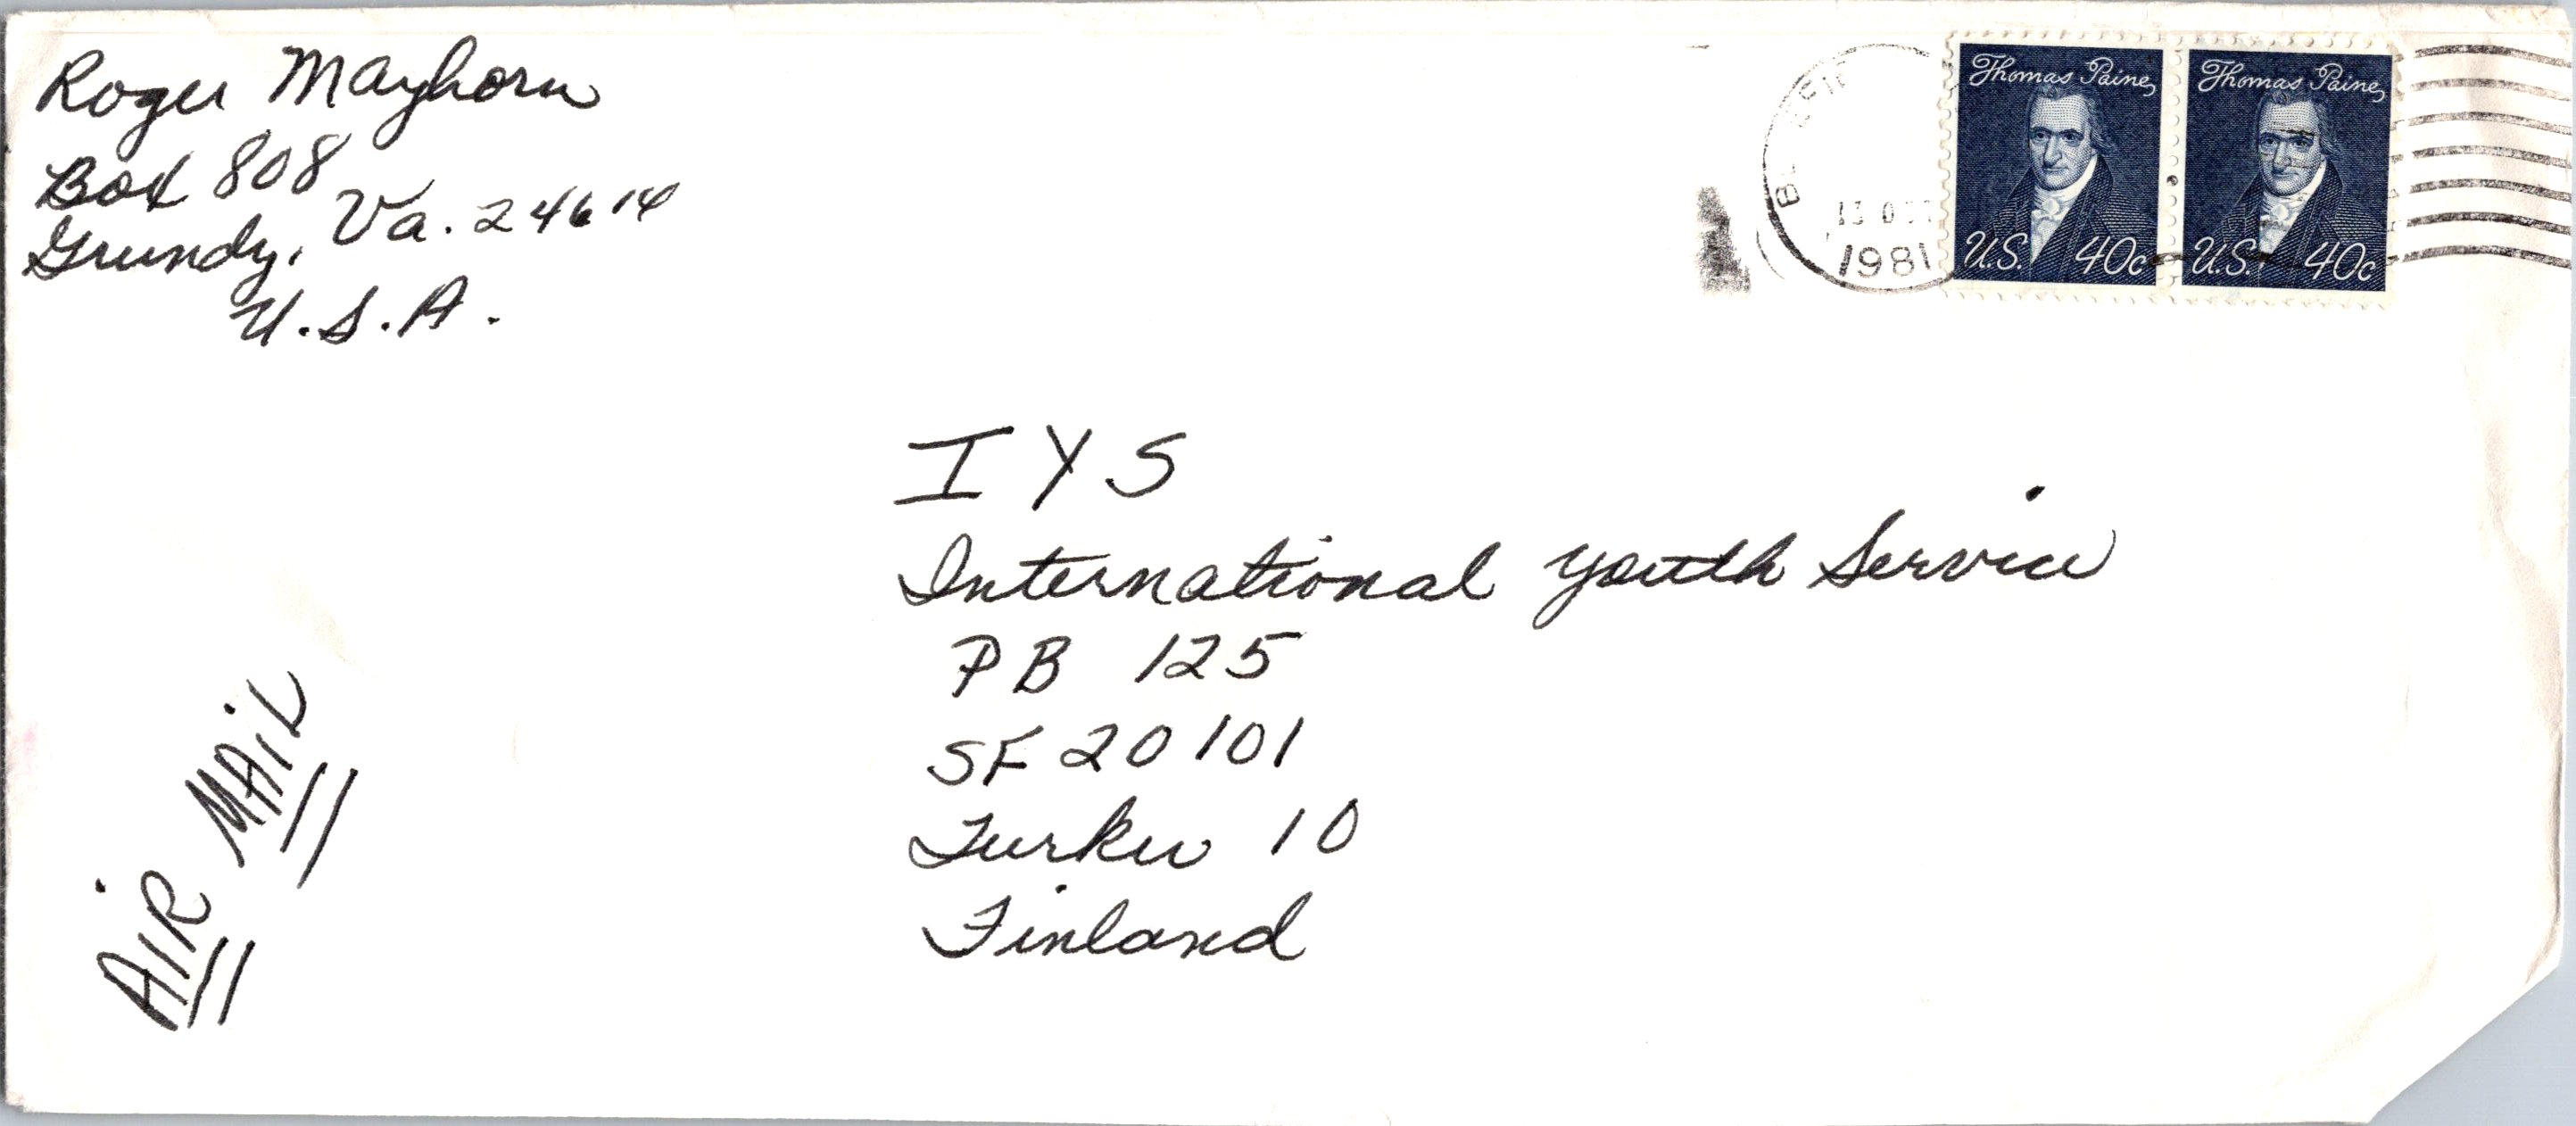 Roger Mayhorn
Box 808
Grundy, Va. 24614
U.S.A.
13 OCT
1981
Thomas Paine
U.S. 40c
Thomas Paine
U.S. 40c
IYS
International Youth Service
PB 125
SF 20101
Turku 10
Finland
AIR MAIL